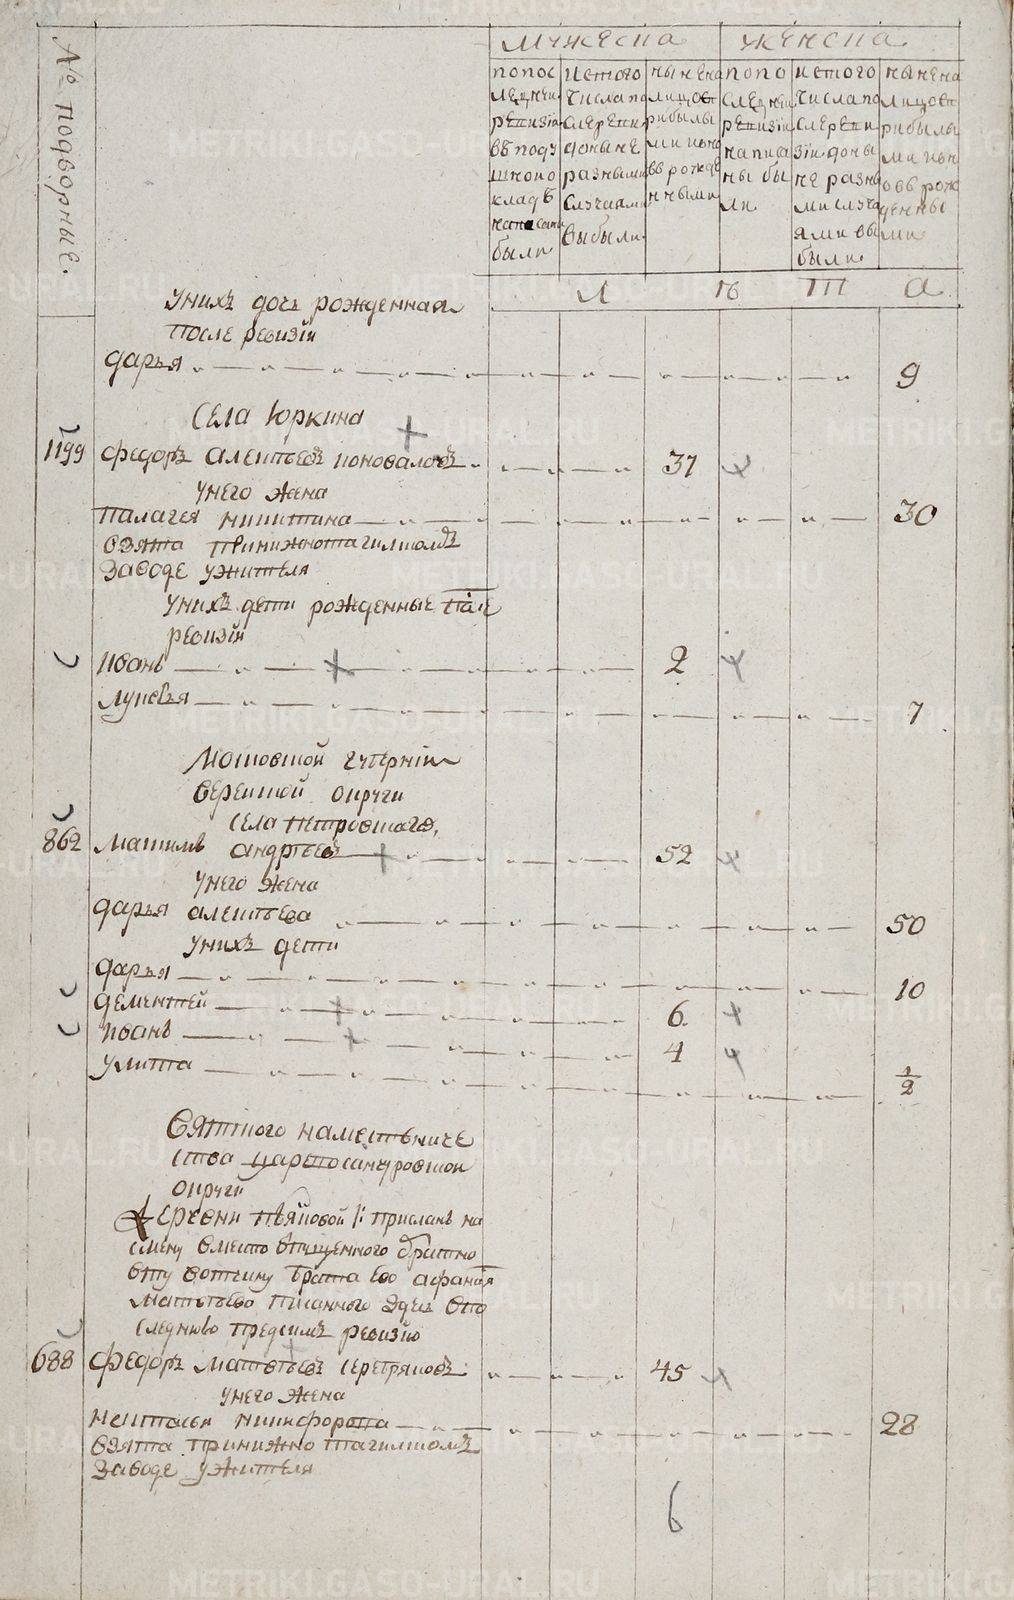 № подворные.
мужеска
женска
попос
ледней
ревизіи
въ поду
шном о
кладѣ
написаны
были
истого
числа по
слѣ реви
зіи до ны не
разными
случаями
выбыли
ны нена
лицо съ п
рибылы
ми и нов
о рожде
нными
попо
следней
ревизіи
написа
ны бы
ли
истого
числа по
слѣ реви
зіи до ны
не разны
ми случа
ями вы
были
ны нена
лицо съ п
рибылы
ми и но
во рож
денны
ми
л ѣ т а
унихъ дочь рожденная
после ревизіи
дарья 9
села Юркина
1199 федоръ алексѣевъ коноваловъ 37
унего жена
палагея никитина 30
взята принижнотагилскомъ
заводе ужителя
унихъ дети рожденные после
ревизіи
иванъ 2
лукерья 7
Московской губерніи
верейской округи
села петровскаго,
862 максимъ андреевъ 52
унего жена
дарья алексѣева 50
унихъ дети
дарья 10
дементей 6
иванъ 4
улита 1/2
Вятского наместьниче
ства царевосанчуровской
округи
деревни присланъ на
смену вместо отпущенного обратно
въту вотчину брата ево афанася
матвѣева писанного здесь впо
следнюю предсимъ ревизію
688 федоръ матвѣевъ серебряковъ 45
унего жена
настасья никифорова 28
взята принижно тагилскомъ
заводе ужителя
6
METRIKI.GASO-URAL.RU